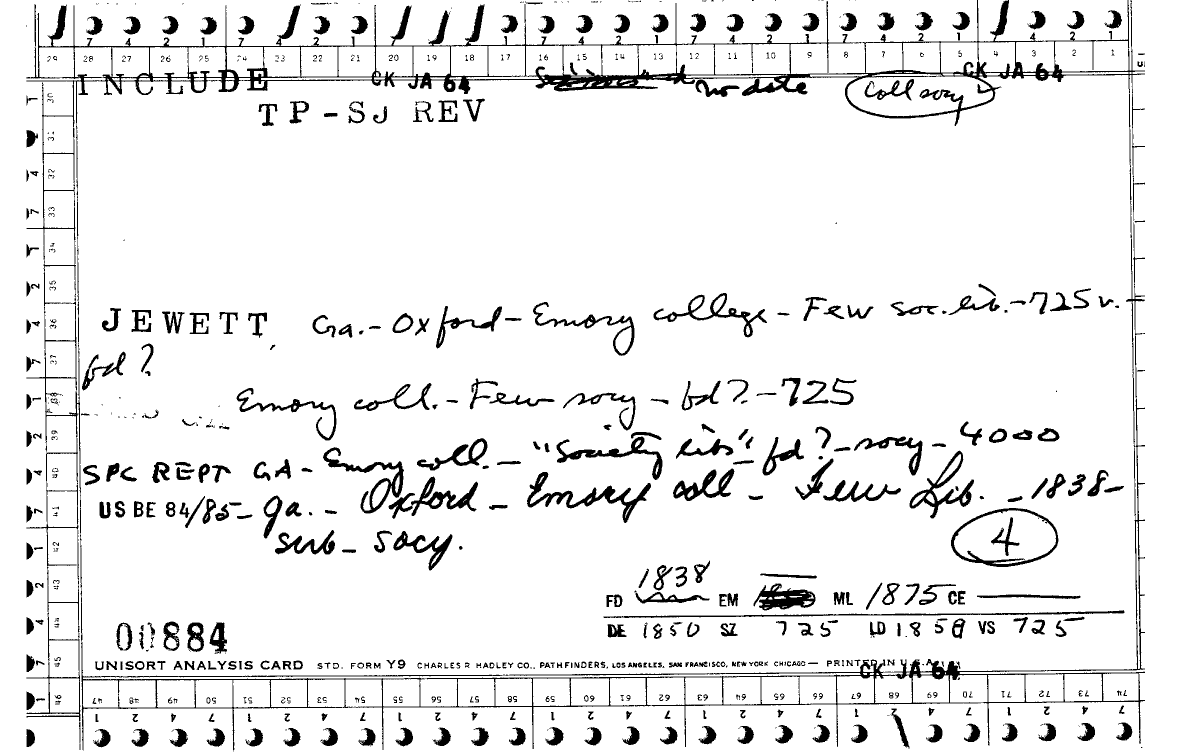 7 4 2 1 7 4 2 1 7 4 2 1 7 4 2 1 7 4 2 1 7 4 2 1
29 28 27 26 25 24 23 22 21 20 19 18 17 16 15 14 13 12 11 10 9 8 7 6 5 4 3 2 1
INCLUDE CK JA 64 no date Coll socy CK JA 64
TP-SJ REV
JEWETT Ga. - Oxford - Emory college - Few soc. lib. - 725 v. -
fd?
Emory coll. - Few socy - fd? - 725
SPC REPT GA - Emory coll. - "Society libs" - fd? - socy - 4000
US BE 84/85 - Ga. - Oxford - Emory coll - Few Lib. - 1838 -
sub - socy.
4
1838
FD EM ML 1875 CE
DE 1850 SZ 725 LD 1850 VS 725
00884
UNISORT ANALYSIS CARD STD. FORM Y9 CHARLES R HADLEY CO., PATHFINDERS, LOS ANGELES, SAN FRANCISCO, NEW YORK CHICAGO — PRINTED IN U.S.A.
CK JA 64
47 48 49 50 51 52 53 54 55 56 57 58 59 60 61 62 63 64 65 66 67 68 69 70 71 72 73 74